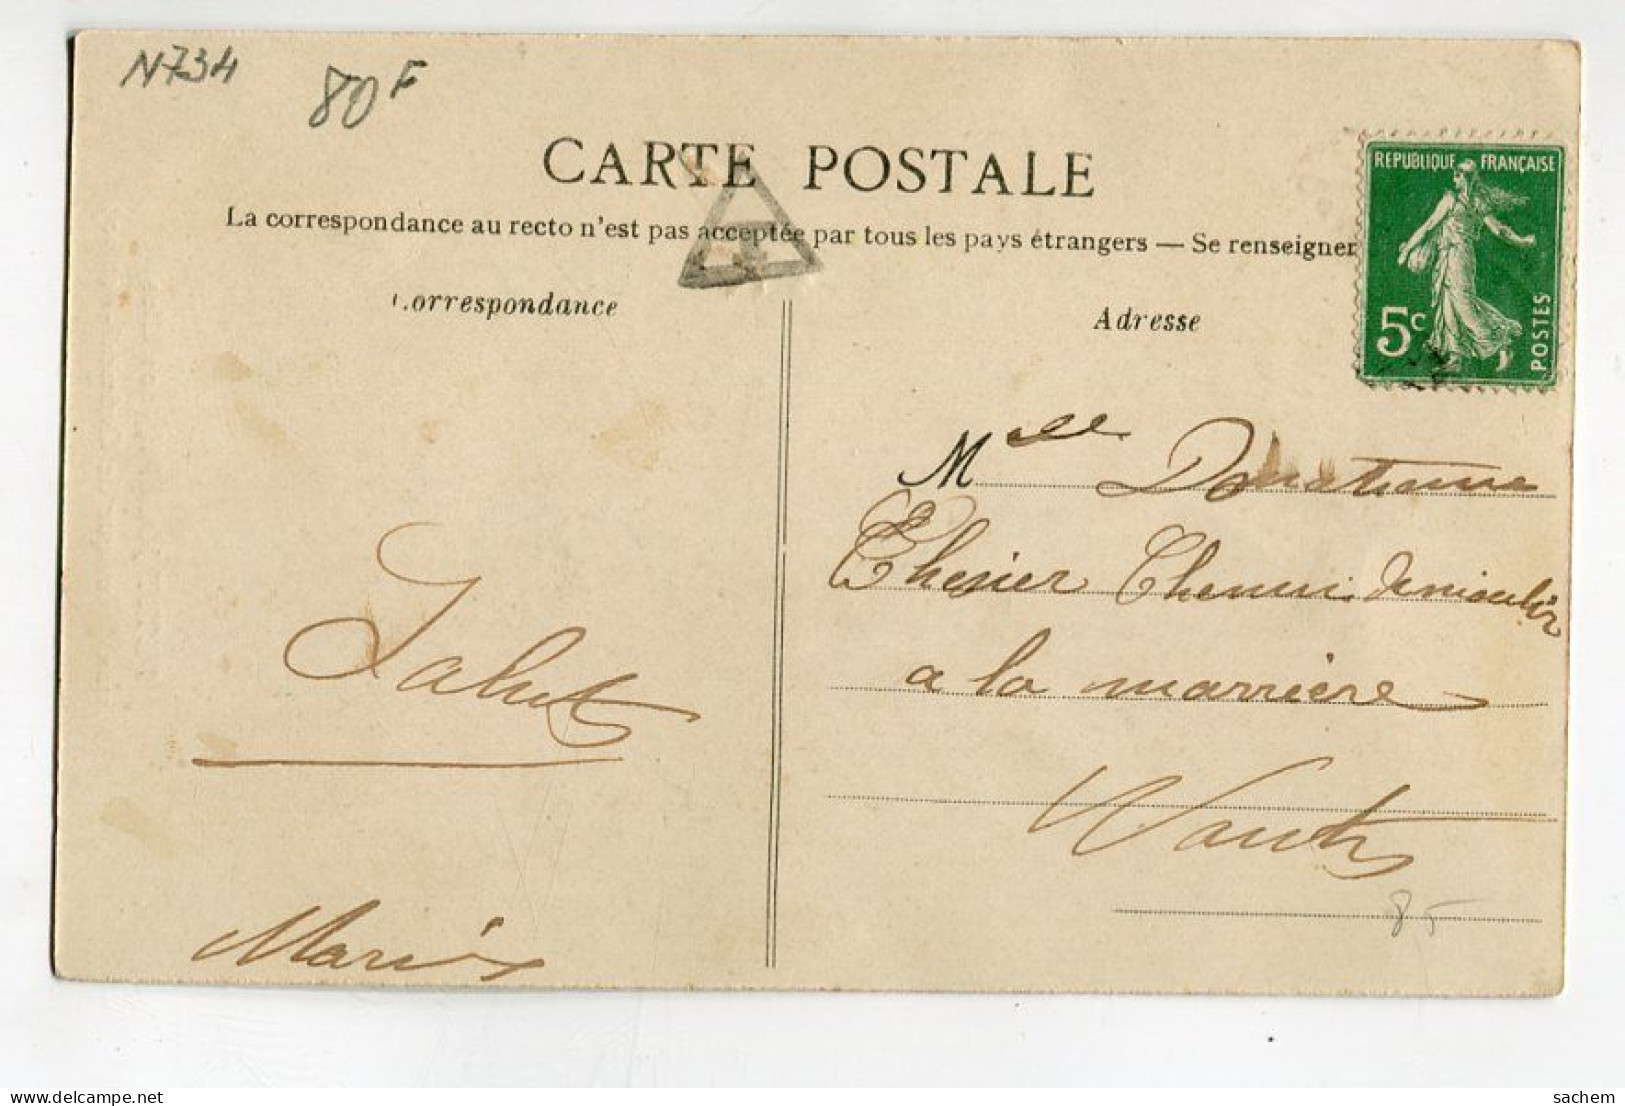 N734
80F
CARTE POSTALE
La correspondance au recto n'est pas acceptée par tous les pays étrangers — Se renseigner
REPUBLIQUE FRANÇAISE
5c
POSTES
Correspondance
Adresse
Mlle Donatienne
Chesier Chemin de moulin
a la marriere
Nantes
Salut
Marie
85
delcampe.net
sachem